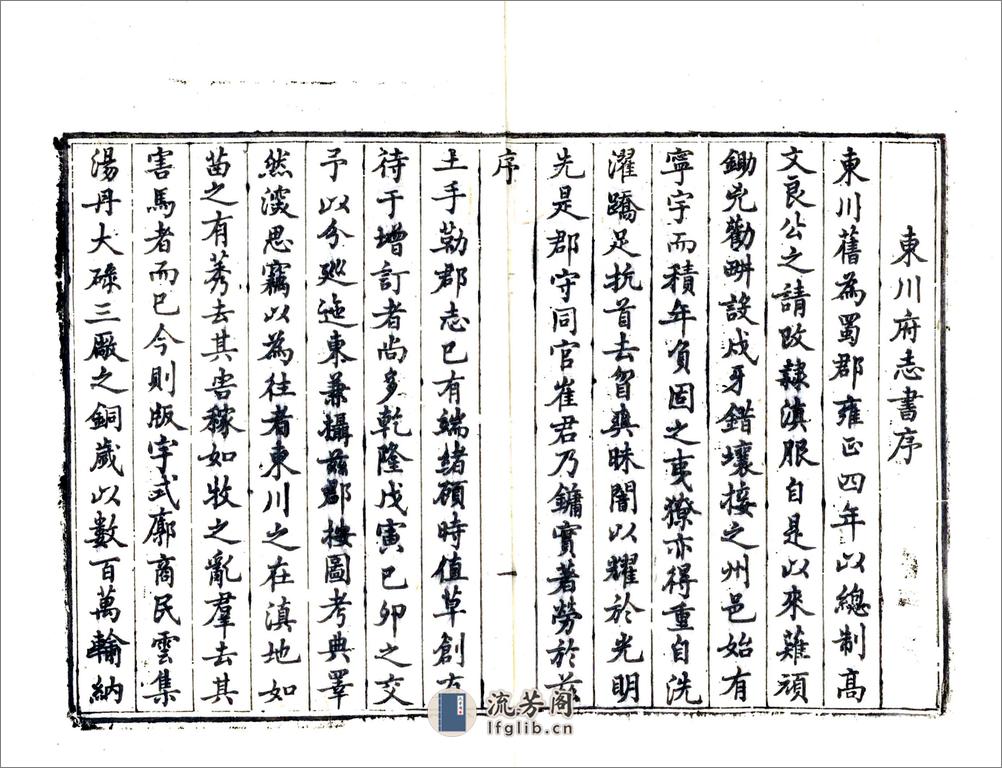 東川府志書序
東川舊為蜀郡雍正四年以總制高
文良公之請改隸滇服自是以來薙頑
鋤兇勸畊設戍牙錯壤接之州邑始有
寧宇而積年負固之夷獠亦得重自洗
濯蹻足抗首去曶爽昧闇以耀於光明
先是郡守同官崔君乃鏞實著勞於茲
序
一
土手勒郡志已有端緒碩時值草創有
待于增訂者尚多乾隆戊寅己卯之交
予以分廵迤東兼攝茲郡按圖考典罩
然深思竊以為往者東川之在滇地如
苗之有莠去其害稼如牧之亂羣去其
害馬者而已今則版宇式廓商民雲集
湯丹大碌三廠之銅歲以數百萬輸納
流芳阁
lfglib.cn